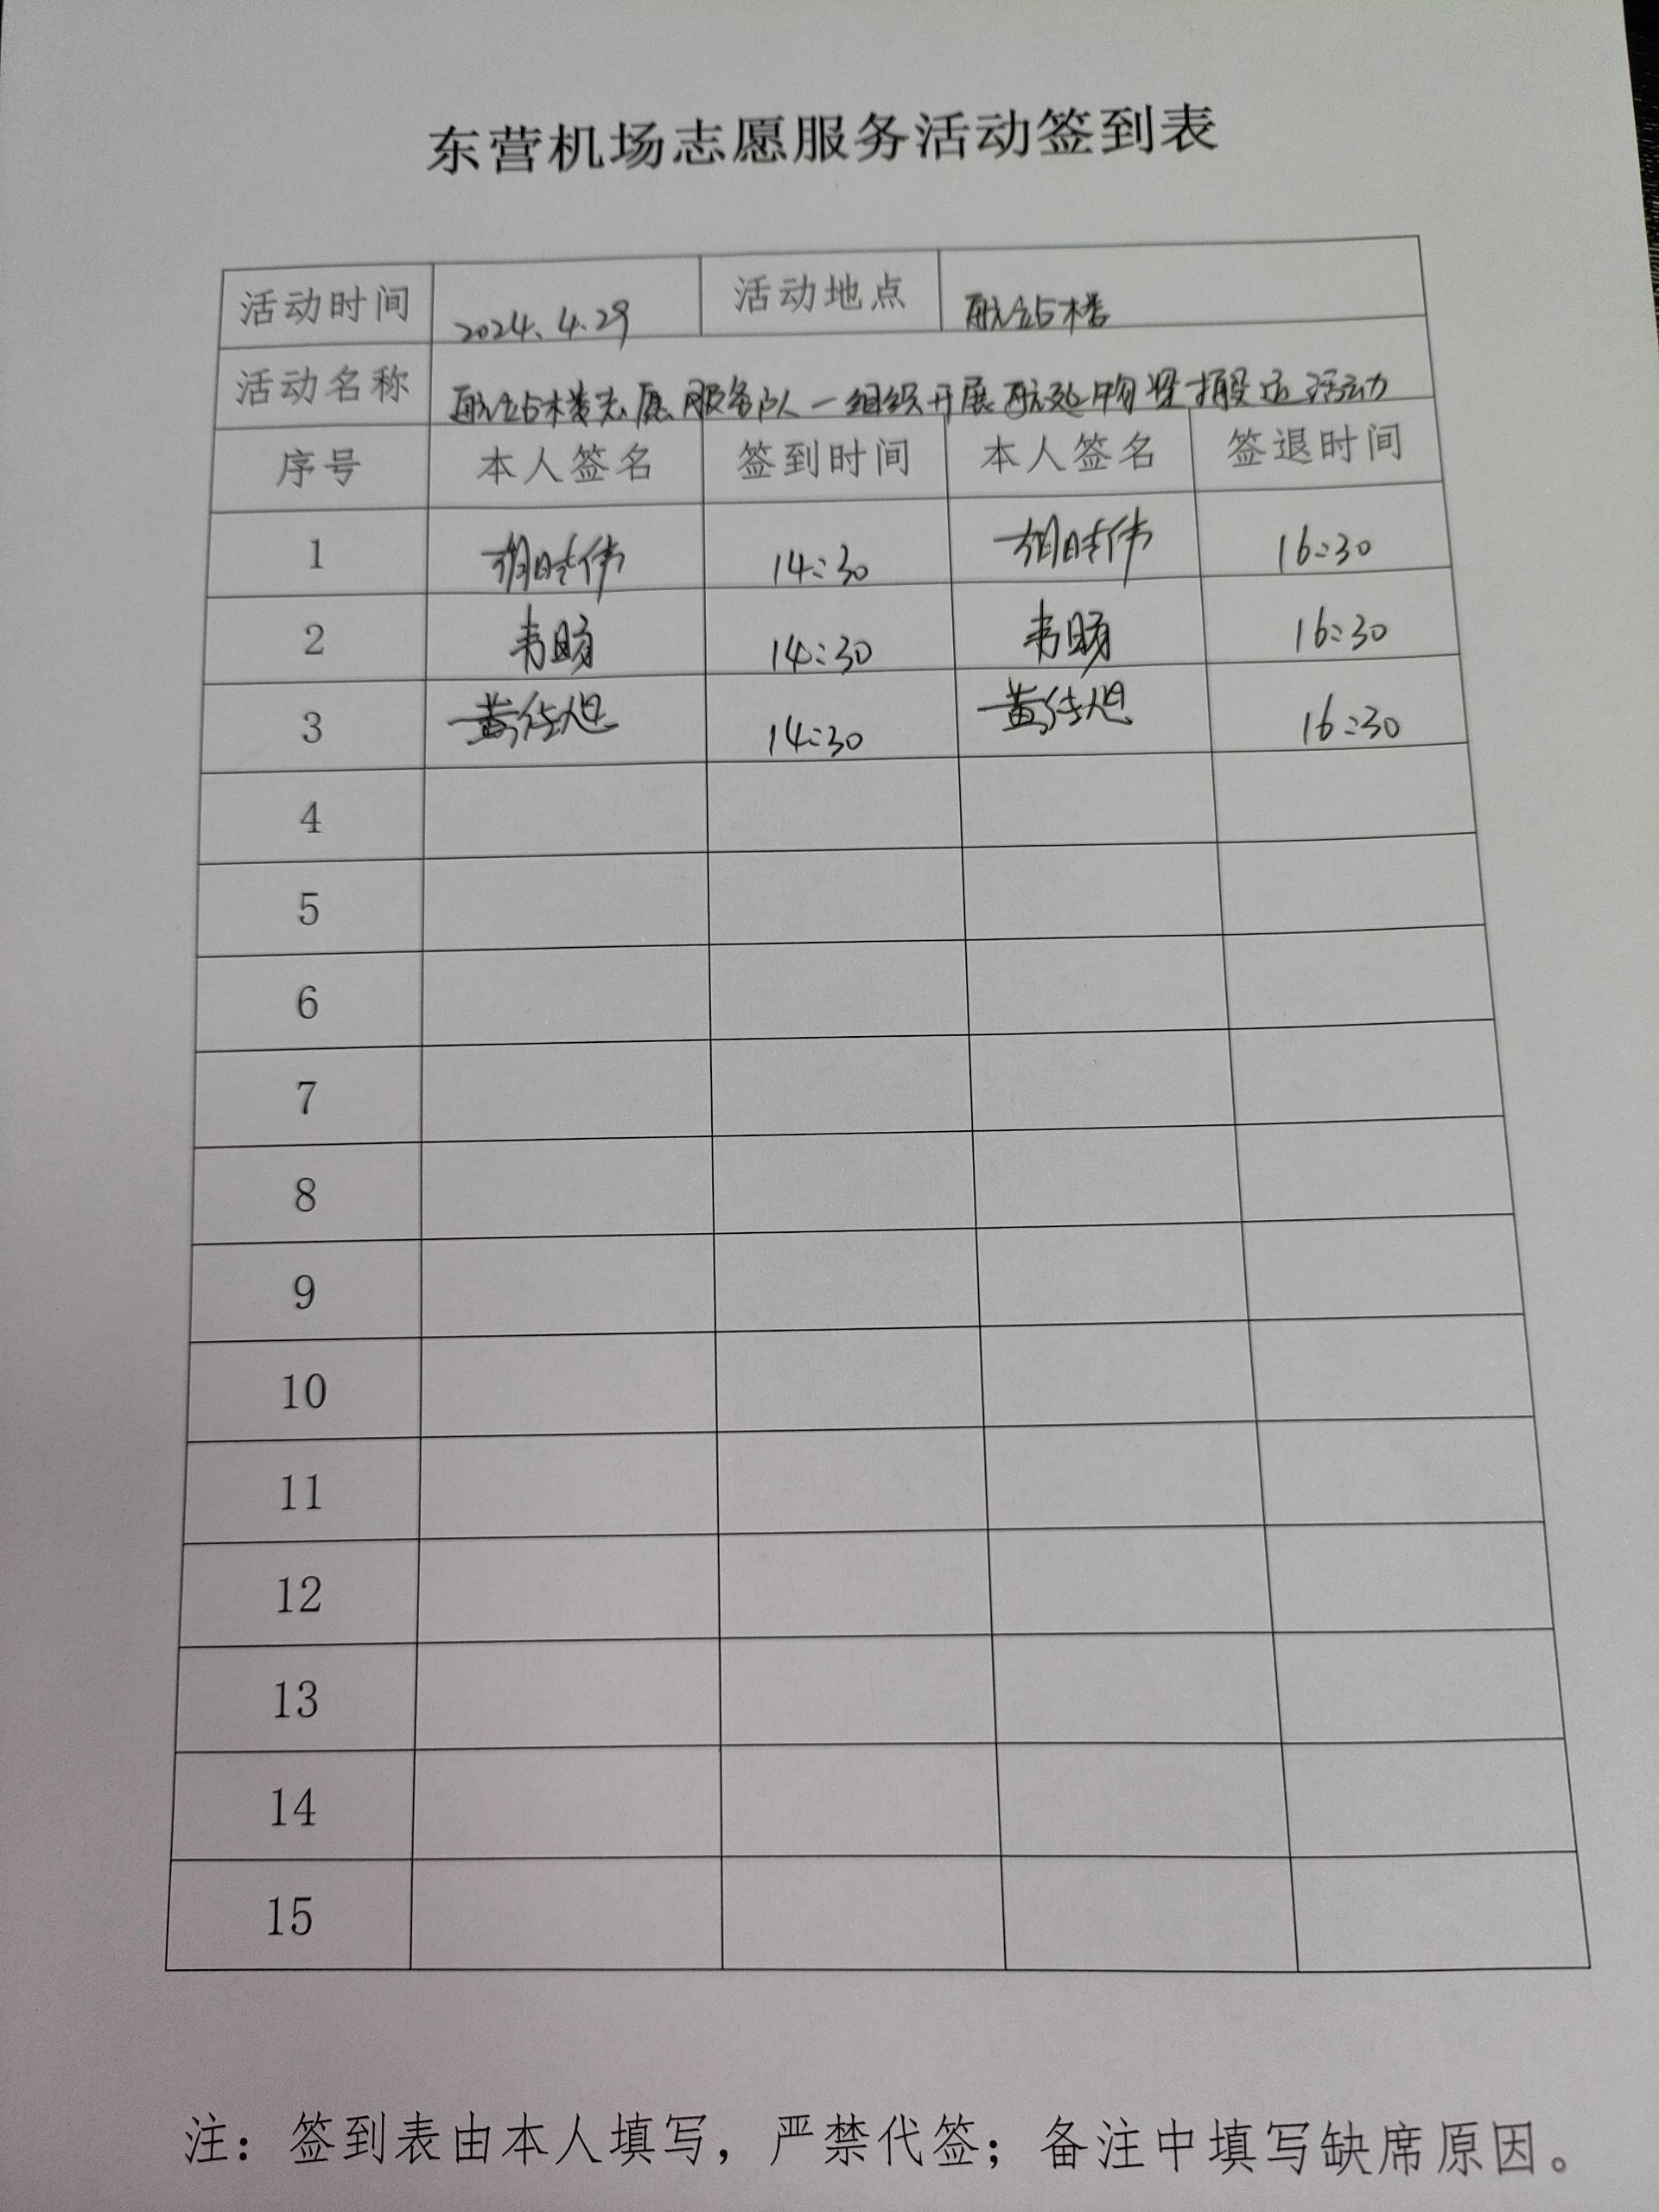 东营机场志愿服务活动签到表
活动时间 2024.4.29 活动地点 航站楼
活动名称 航站楼志愿服务队一组织开展航延物资搬运活动
序号 本人签名 签到时间 本人签名 签退时间
1 14:30 16:30
2 14:30 16:30
3 黄 14:30 黄 16:30
4
5
6
7
8
9
10
11
12
13
14
15
注：签到表由本人填写，严禁代签；备注中填写缺席原因。